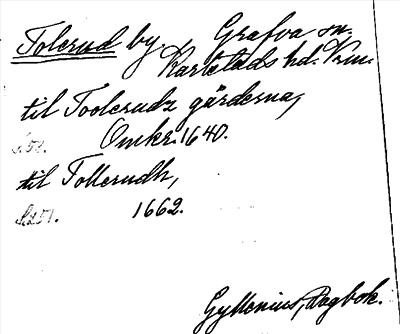 Tolerud by Grafva sn.
Karlstads hd. Vrm.
til Toolerudz gärderna,
S. 52. Omkr. 1640.
til Tollerudh,
S. 251. 1662.
Gyllenius, Dagbok.